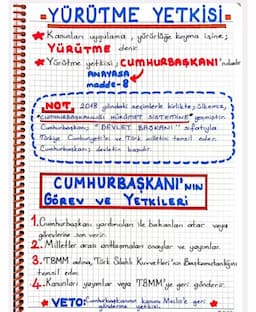 YÜRÜTME YETKİSİ
★ Kanunları uygulama, yürürlüğe koyma işine;
YÜRÜTME denir.
★ Yürütme yetkisi; CUMHURBAŞKANI'ndadır
ANAYASA
madde-8
NOT, 2018 yılındaki seçimlerle birlikte; ülkemiz,
"CUMHURBAŞKANLIĞI HÜKÜMET SİSTEMİNE" geçmiştir.
Cumhurbaşkanı; "DEVLET BAŞKANI" sıfatıyla
Türkiye Cumhuriyetini ve Türk milletini temsil eder.
Cumhurbaşkanı; devletin başıdır.
CUMHURBAŞKANI'NIN
GÖREV VE YETKİLERİ
1. Cumhurbaşkanı yardımcıları ile bakanları atar veya
görevlerine son verir.
2. Milletler arası antlaşmaları onaylar ve yayımlar.
3. TBMM adına, Türk Silahlı Kuvvetleri'nin Başkomutanlığını
temsil eder.
4. Kanunları yayımlar veya TBMM'ye geri gönderir.
★ VETO: Cumhurbaşkanının kanunu Meclis'e geri
gönderme yetkisi.